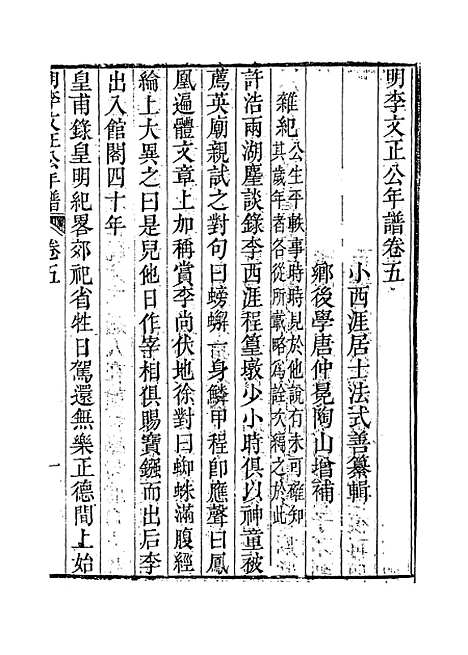 明李文正公年譜卷五
小西涯居士法式善纂輯
鄉後學唐仲冕陶山增補
雜紀公生平軼事時時見於他說有未可確知
其歲年者各從所載略爲詮次稱之於此
許浩兩湖麈談錄李西涯程篁墩少小時俱以神童被
薦英廟親試之對句曰螃蠏一身鱗甲程卽應聲曰鳳
凰遍體文章上加稱賞李尚伏地徐對曰蜘蛛滿腹經
綸上大異之曰是兒他日作宰相俱賜寶鏹而出后李
出入館閣四十年
皇甫錄皇明紀畧郊祀省牲日駕還無樂正德間上始
明李文正公年譜 卷五 一